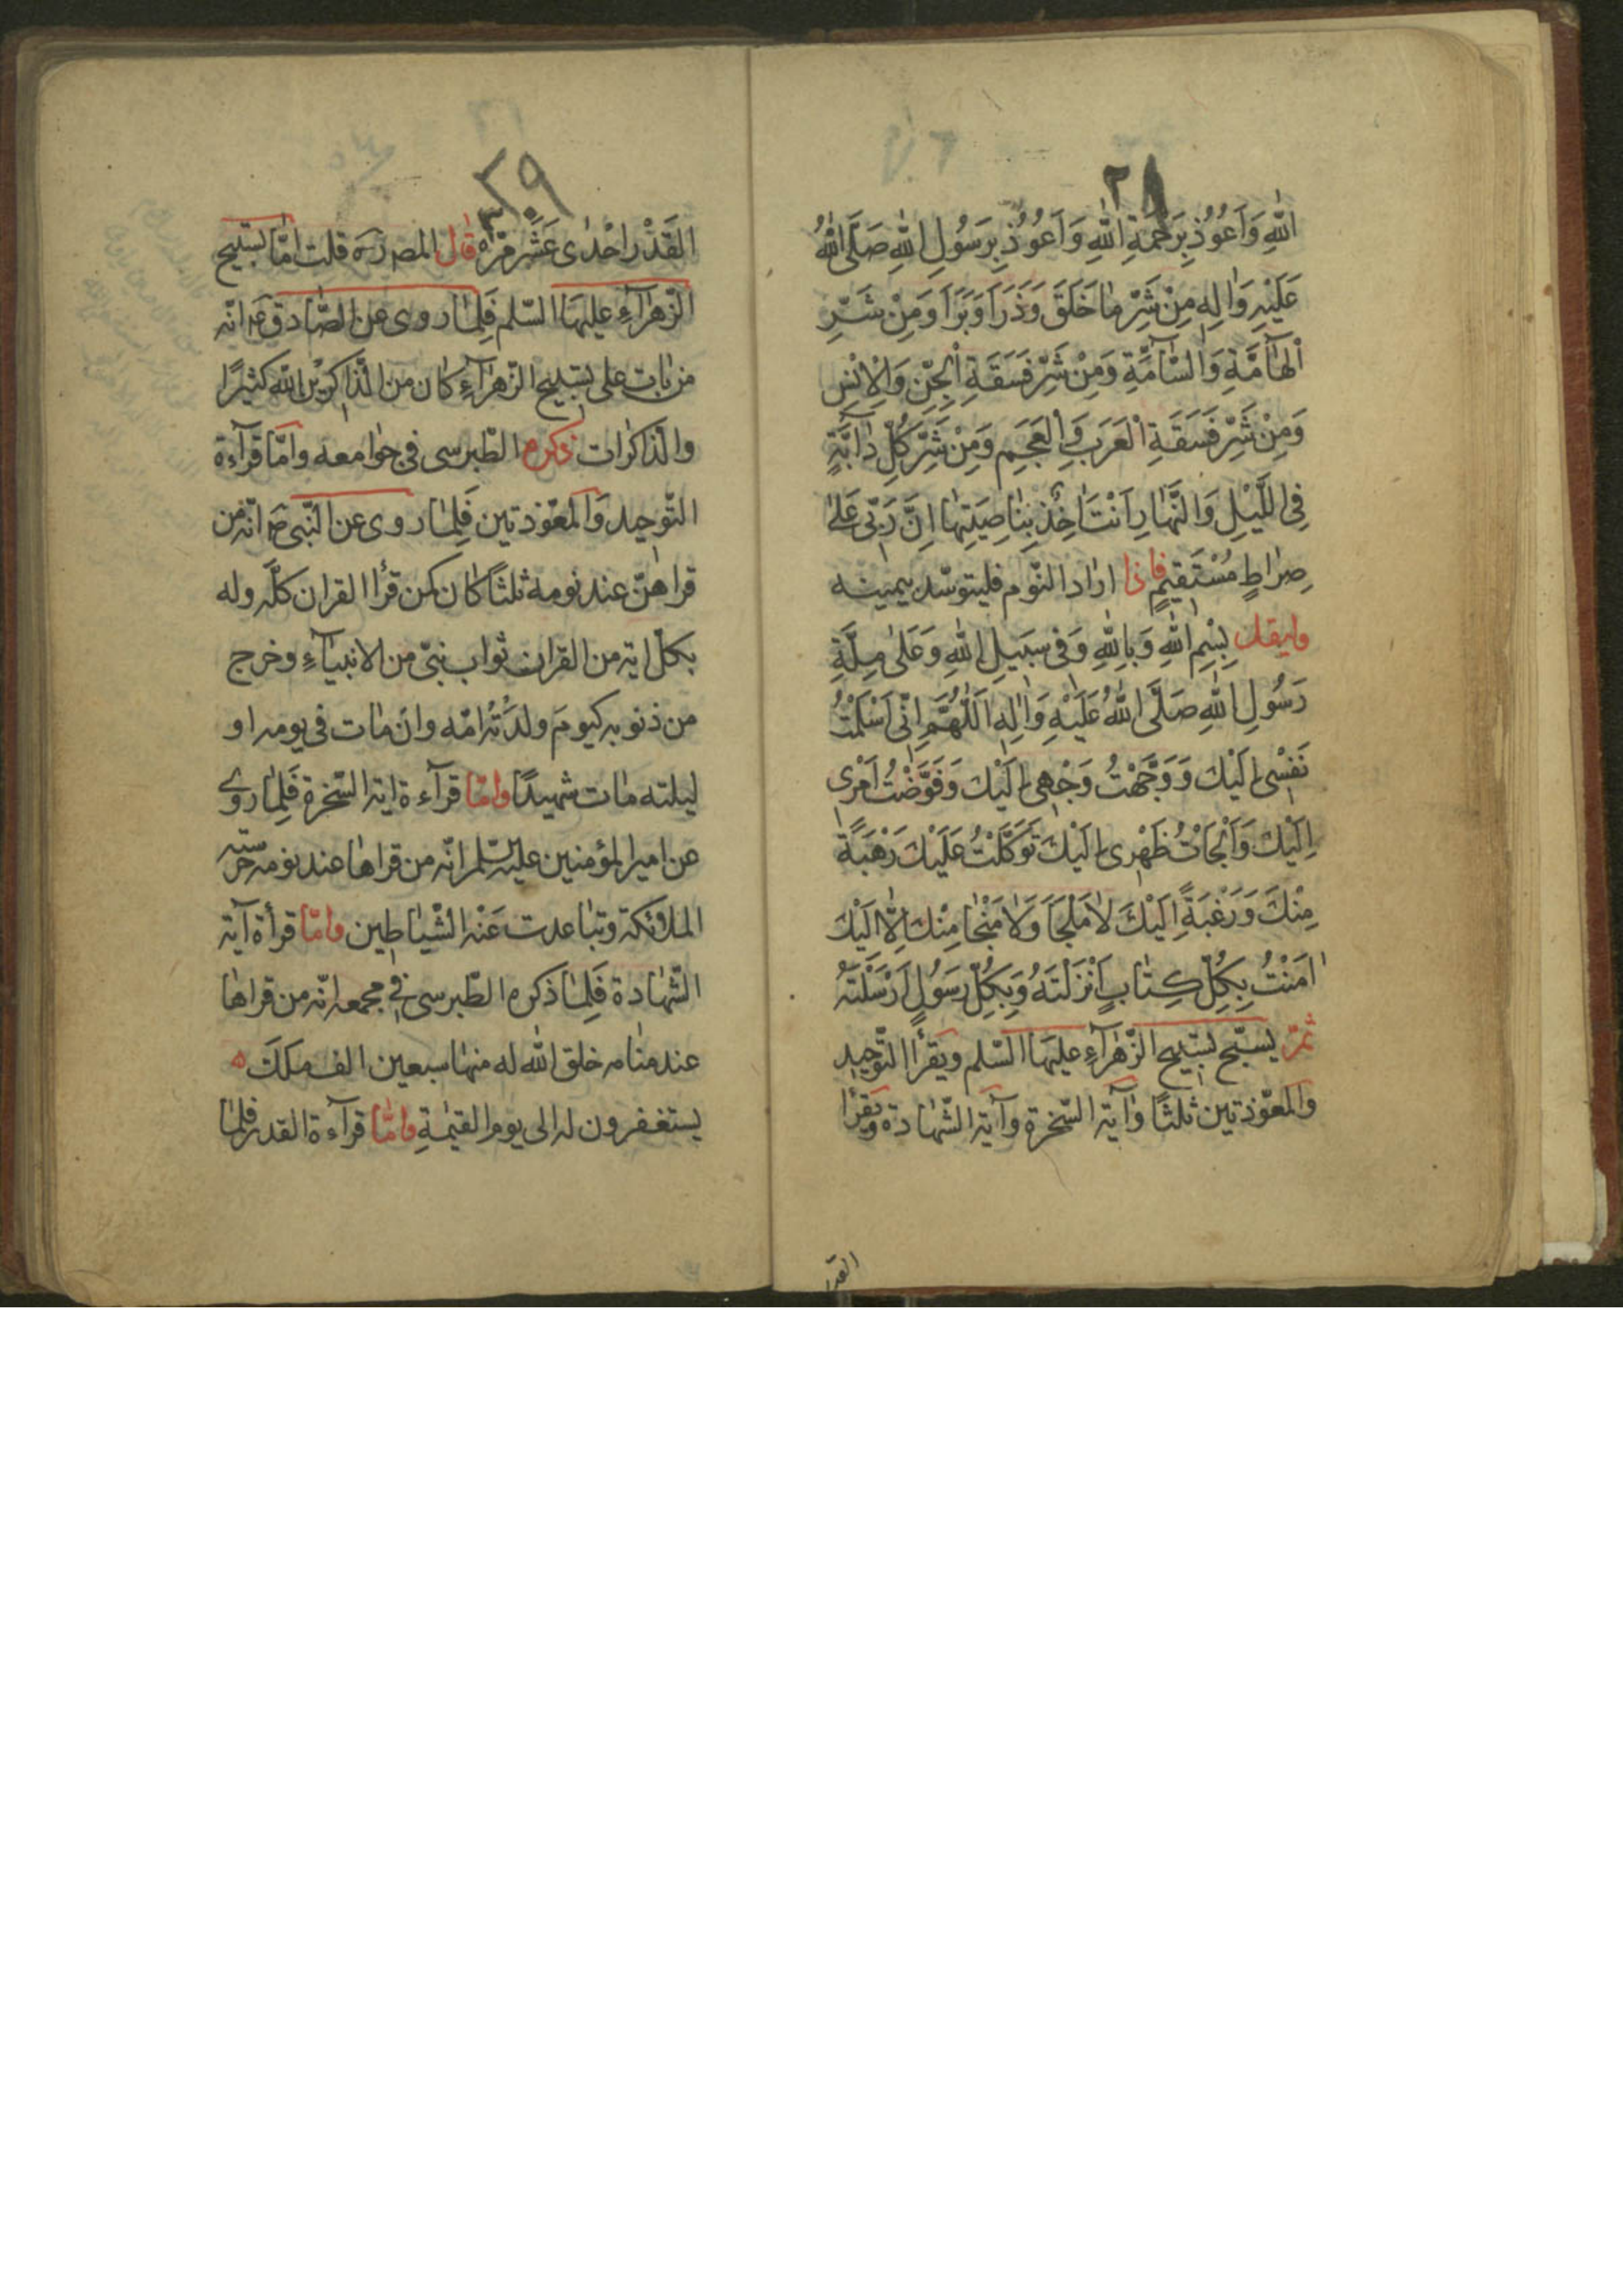 ٢٨
اللّٰهِ وَاَعُوُذُ بِرَحْمَةِ اللّٰهِ وَاَعوُذُ بِرَسُولِ اللّٰهِ صَلَّى اللّٰهُ
عَلَيْهِ وَاٰلِهِ مِنْ شَرِّ مٰا خَلَقَ وَذَرَأَ وَبَرَأَ وَمِنْ شَرِّ
اْلهٰآمَّةِ وَالسّٰآمَّةِ وَمِنْ شَرِّ فَسَقَةِ اْلجِنِّ وَالْاِنْسِ
وَمِنْ شَرِّ فَسَقَةِ اْلعَرَبِ وَاْلعَجَمِ وَمِنْ شَرِّ كُلِّ دٰابَّةٍ
فِى اللَّيْلِ وَالنَّهٰارِ اَنْتَ اٰخِذٌ بِنٰاصِيَتِهٰا اِنَّ رَبّى عَلىٰ
صِرٰاطٍ مُسْتَقيمٍ فاذا ارٰاد النّوم فليتوسّد بيمينه
وليقل بِسْمِ اللّٰهِ وَبِاللّٰهِ وَفى سَبيلِ اللّٰهِ وَعَلىٰ مِلَّةِ
رَسُولِ اللّٰهِ صَلَّى اللّٰهُ عَلَيْهِ وَاٰلِهِ اَللّٰهُمَّ اِنّى اَسْلَمْتُ
نَفْسْى اِلَيْكَ وَوَجَّهْتُ وَجْهى اِلَيْكَ وَفَوَّضْتُ اَمْرى
اِلَيْكَ وَاَلْجَأْتُ ظَهْرى اِلَيْكَ تَوَكَّلْتُ عَلَيْكَ رَهْبَةً
مِنْكَ وَرَغْبَةً اِلَيْكَ لاٰ مَلْجَأَ وَلاٰ مَنْجٰا مِنْكَ اِلّٰا اِلَيْكَ
اٰمَنْتُ بِكُلِّ كِتٰابٍ اَنْزَلْتَهُ وَبِكُلِّ رَسُولٍ اَرْسَلْتَهُ
ثمّ يسبّح تسبيح الزّهرٰآءِ عليهَا السّلم ويقرأ التّوحيد
والمعّوذتين ثلثًا وآية السّخرة وآية الشّهٰادة ويقرأ
القدر
٢٩
القَدْر احْدٰى عَشَر مرّة قال المص ره قلت امّا تسبيح
الزّهرٰآءِ عليهَا السّلم فَلِمٰا روى عن الصّادق ع انّه
من بٰات على تسبيح الزّهرٰآءِ كٰان من الذّٰاكرين اللّٰه كثيرًا
والذّاكرٰات ذكره الطّبرسى فى جوٰامعه وامّا قرآءة
التّوحيد والمعّوذتين فَلِمٰا روى عن النّبى ص انّه من
قراهنّ عند نومه ثلثًا كٰان كمن قرأ القران كلّه وله
بكلّ اية من القران ثوٰاب نبىّ من الانبيٰآءِ وخرج
من ذنوبه كيوم ولدَتْه امّه وان مٰات فى يومه او
ليلته مٰات شهيدًا وامّا قرآءة اية السّخرة فَلِمٰا روى
عن امير المؤمنين عليه السّلم انّه من قراهٰا عند نومه حرسته
الملائكة وتبٰاعدت عَنْه الشّيٰاطين وامّا قرأة آية
الشّهٰادة فَلِمٰا ذكره الطّبرسى فى مجمعه انّه من قراهٰا
عند منٰامه خلق اللّٰه له منهٰا سبعين الف ملكَ
يستغفرون له الى يوم القيٰمةِ وامّا قرآءة القدر فلمٰا